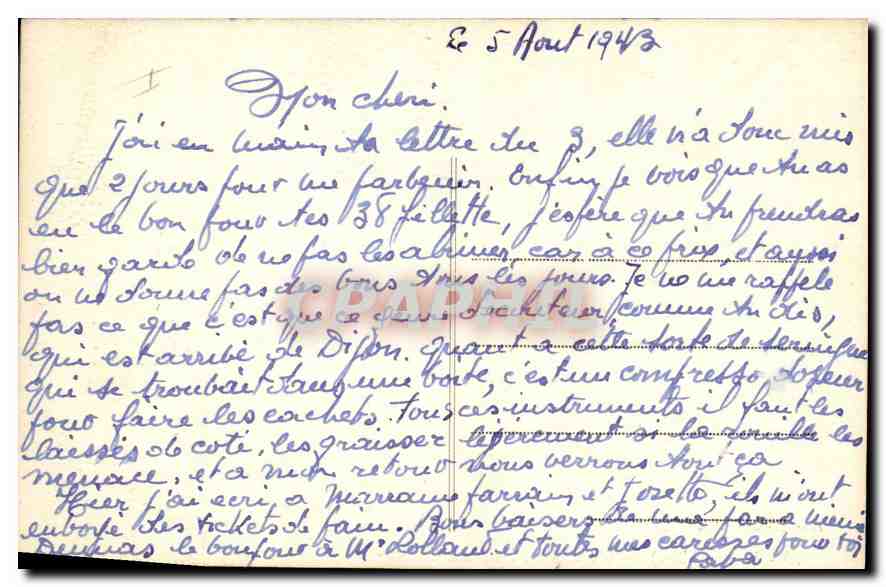 Le 5 Aout 1943
I
Mon cheri.
J'ai en mains ta lettre du 3, elle n'a donc mis
que 2 jours pour me parvenir. Enfin je vois que tu as
eu le bon pour tes 38 fillette, j'espère que tu prendras
bien garde de ne pas les abimer, car à ce prix, et aussi
on ne donne pas des bons tous les jours. Je ne me rappele
pas ce que c'est que ce demi comme tu dis,
qui est arrivé de Dijon. quant à cette sorte de seringue
qui se trouvait dans une boite, c'est un compresso doseur
pour faire les cachets. Tous ces instruments il faut les
laisser de coté, les graisser légèrement si la rouille les
menace, et a mon retour nous verrons tout ça
Hier j'ai ecri a Marraine parrain et Josette, ils m'ont
envoyé des tickets de pain. Bons baisers de
le bonjour à Mr Rolland et toutes mes caresses pour toi
Papa
CPAPHIL